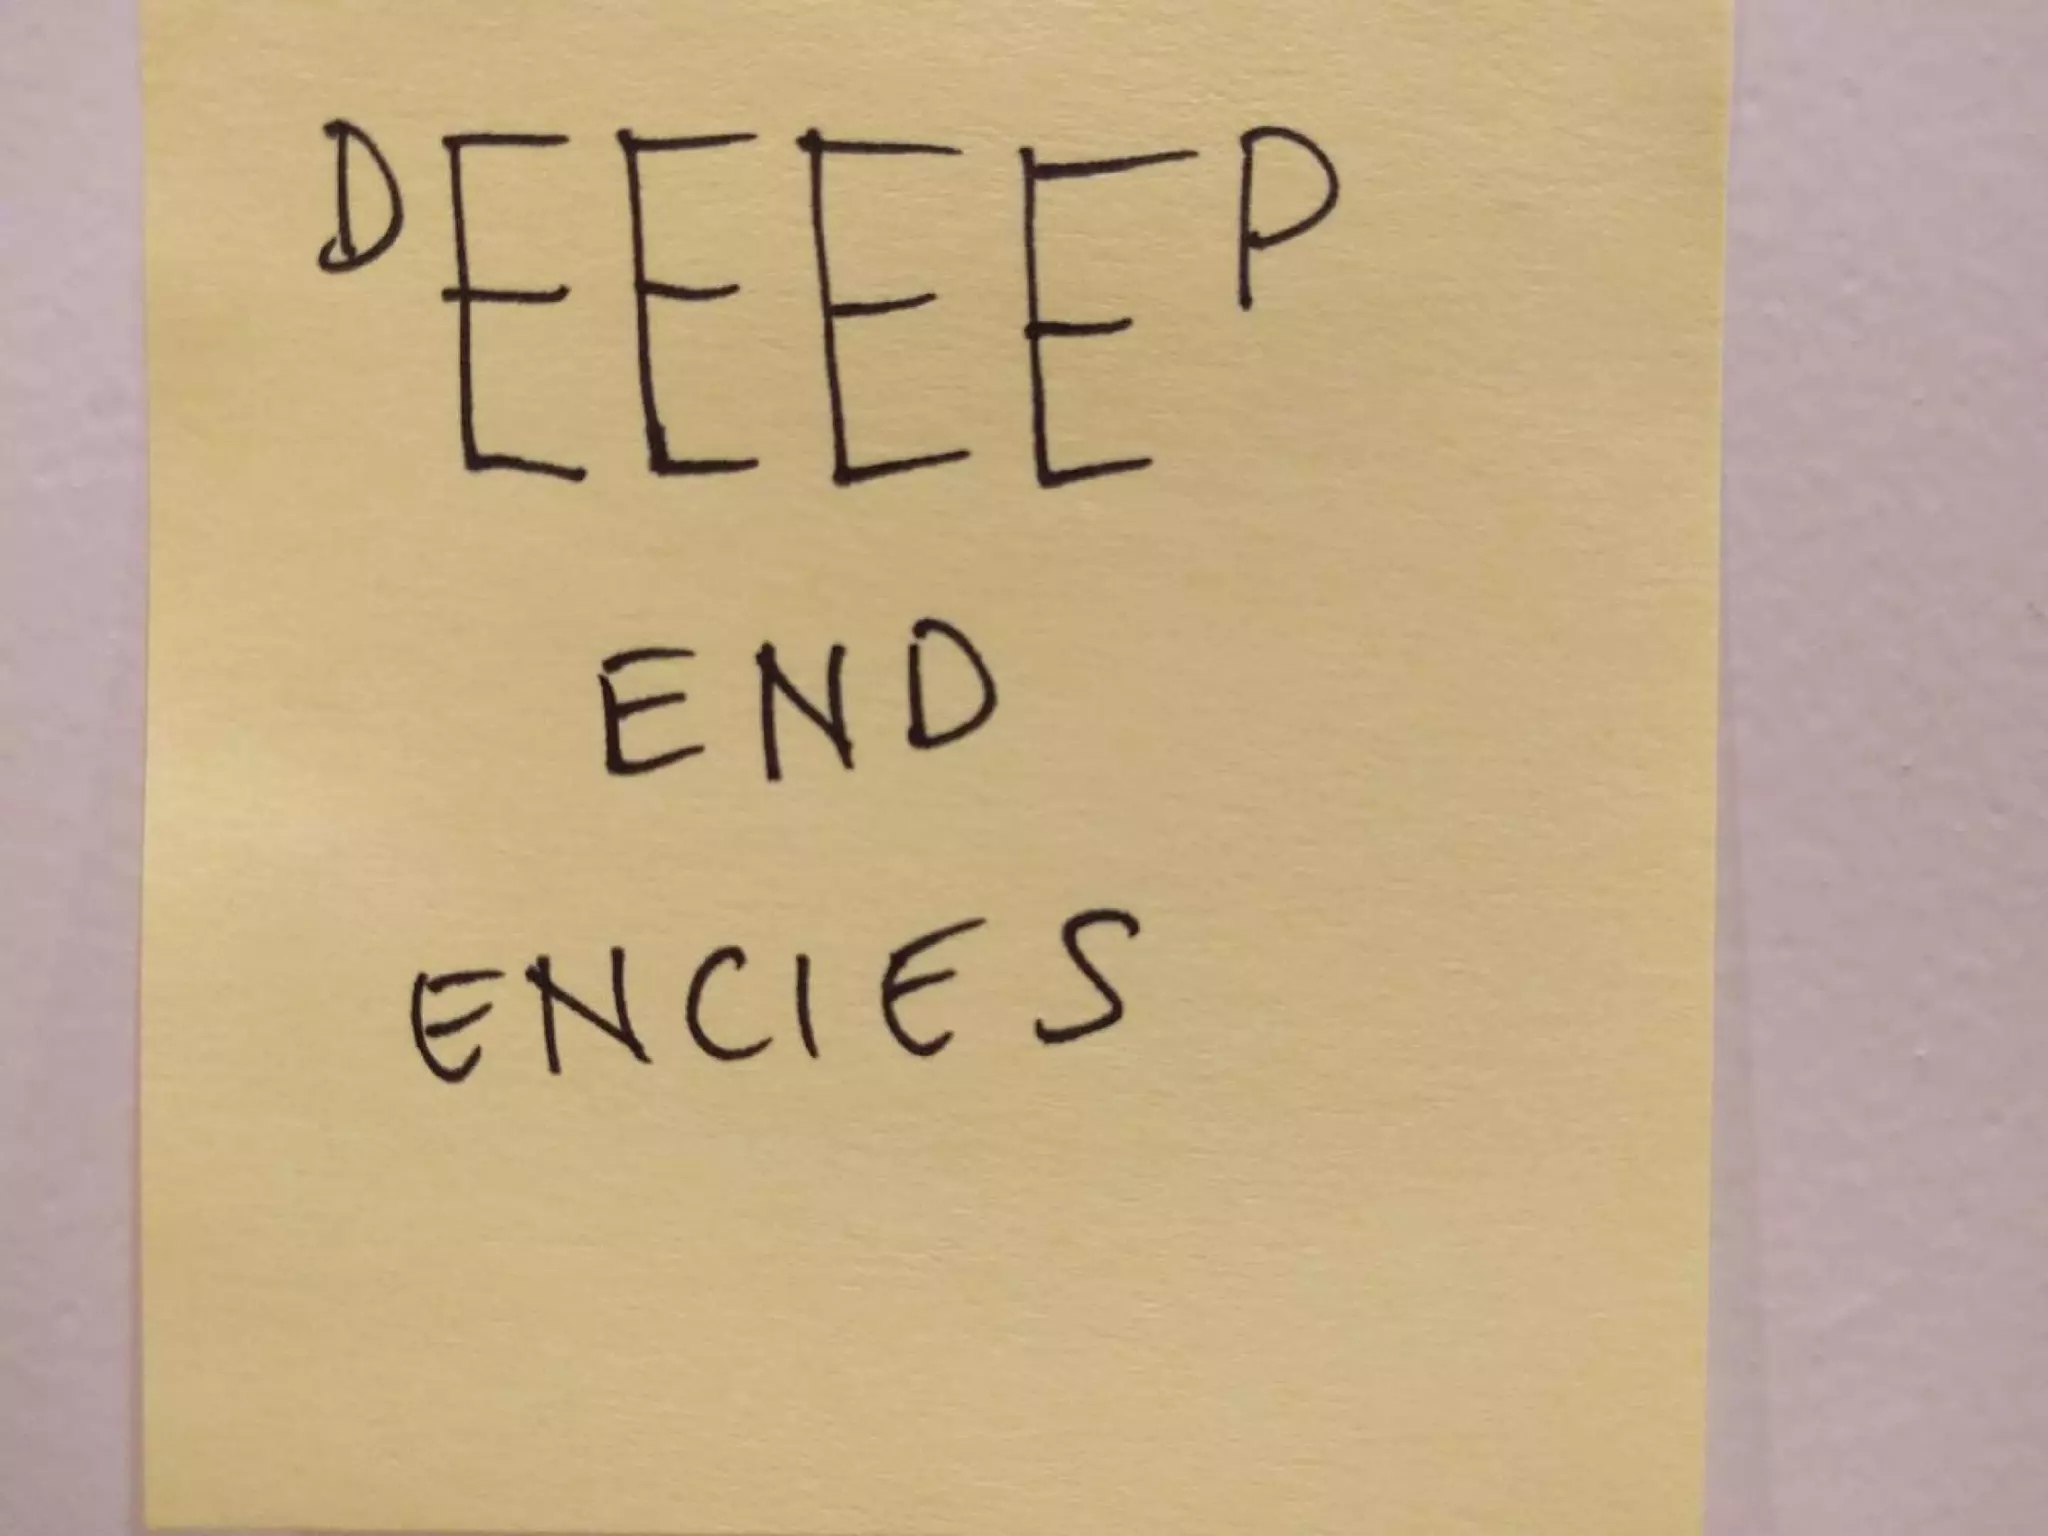 DEEEEP
END
ENCIES